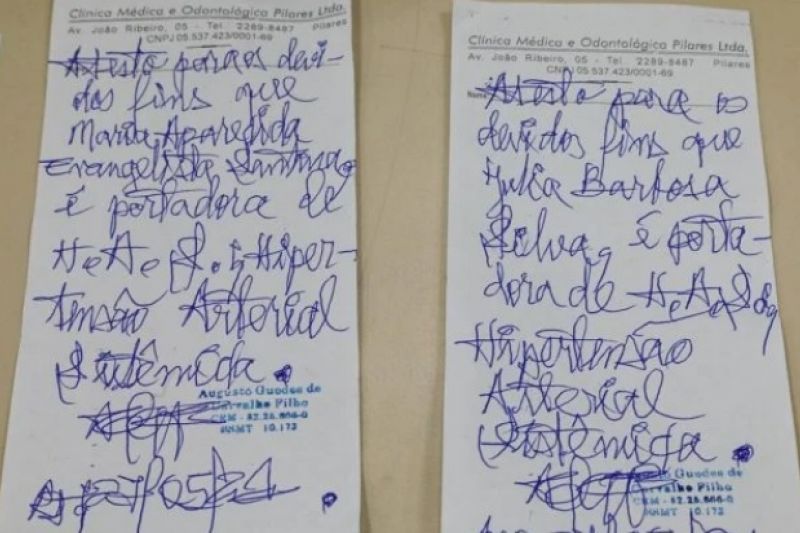 Clínica Médica e Odontológica Pilares Ltda.
Av. João Ribeiro, 05 - Tel. 2289-8487 Pilares
CNPJ 05.537.423/0001-69
Atesto para os devi-
dos fins que
Maria Aparecida
Evangelista Santana
é portadora de
H.A.S., Hiper-
tensão Arterial
Sistêmica.
Augusto Guedes de
Carvalho Filho
CRM - 52.26.606-0
10.173
27/05/21
Clínica Médica e Odontológica Pilares Ltda.
Av. João Ribeiro, 05 - Tel. 2289-8487 Pilares
CNPJ 05.537.423/0001-69
Nome
Atesto para os
devidos fins que
Julia Barbosa
Selva, é porta-
dora de H.A.S.,
Hipertensão
Arterial
Sistêmica.
Augusto Guedes de
Carvalho Filho
CRM - 52.26.606-0
10.173